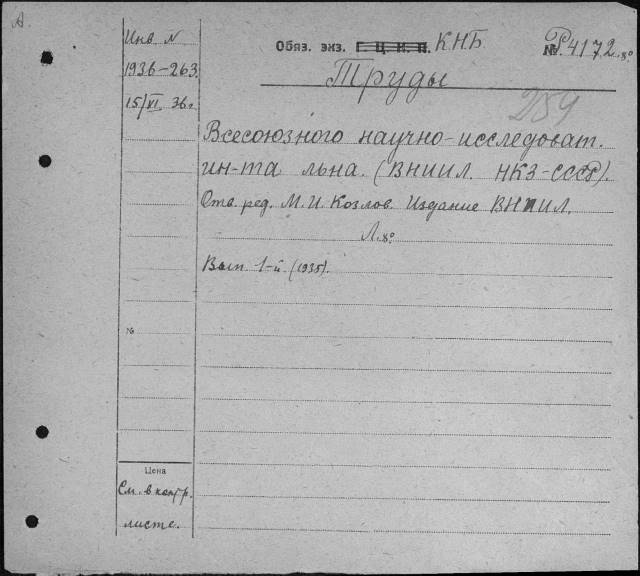 А
Инв. N
1936-263.
15/VI. 36 г.
Обяз. экз. Г. Ц. К. П. КНБ
№ Р4172.8°
Труды
289
Всесоюзного научно-исследоват.
ин-та льна. (ВНИИЛ. НКЗ-СССР).
Отв. ред. М. И. Козлов. Издание ВНИИЛ.
Л. 8°
Вып 1-й. (1935).
№
Цена
См. в контр.
листе.